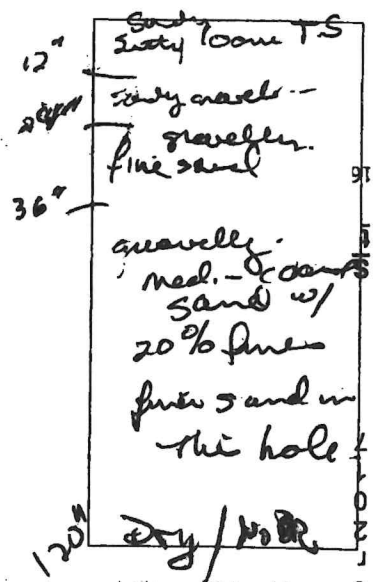 Sandy
Silty loam TS
12"
sandy gravel --
24"
gravelly
fine sand
36"
gravelly
med. - coarse
sand w/
20% fines
finer sand in
this hole
120" Dry / No